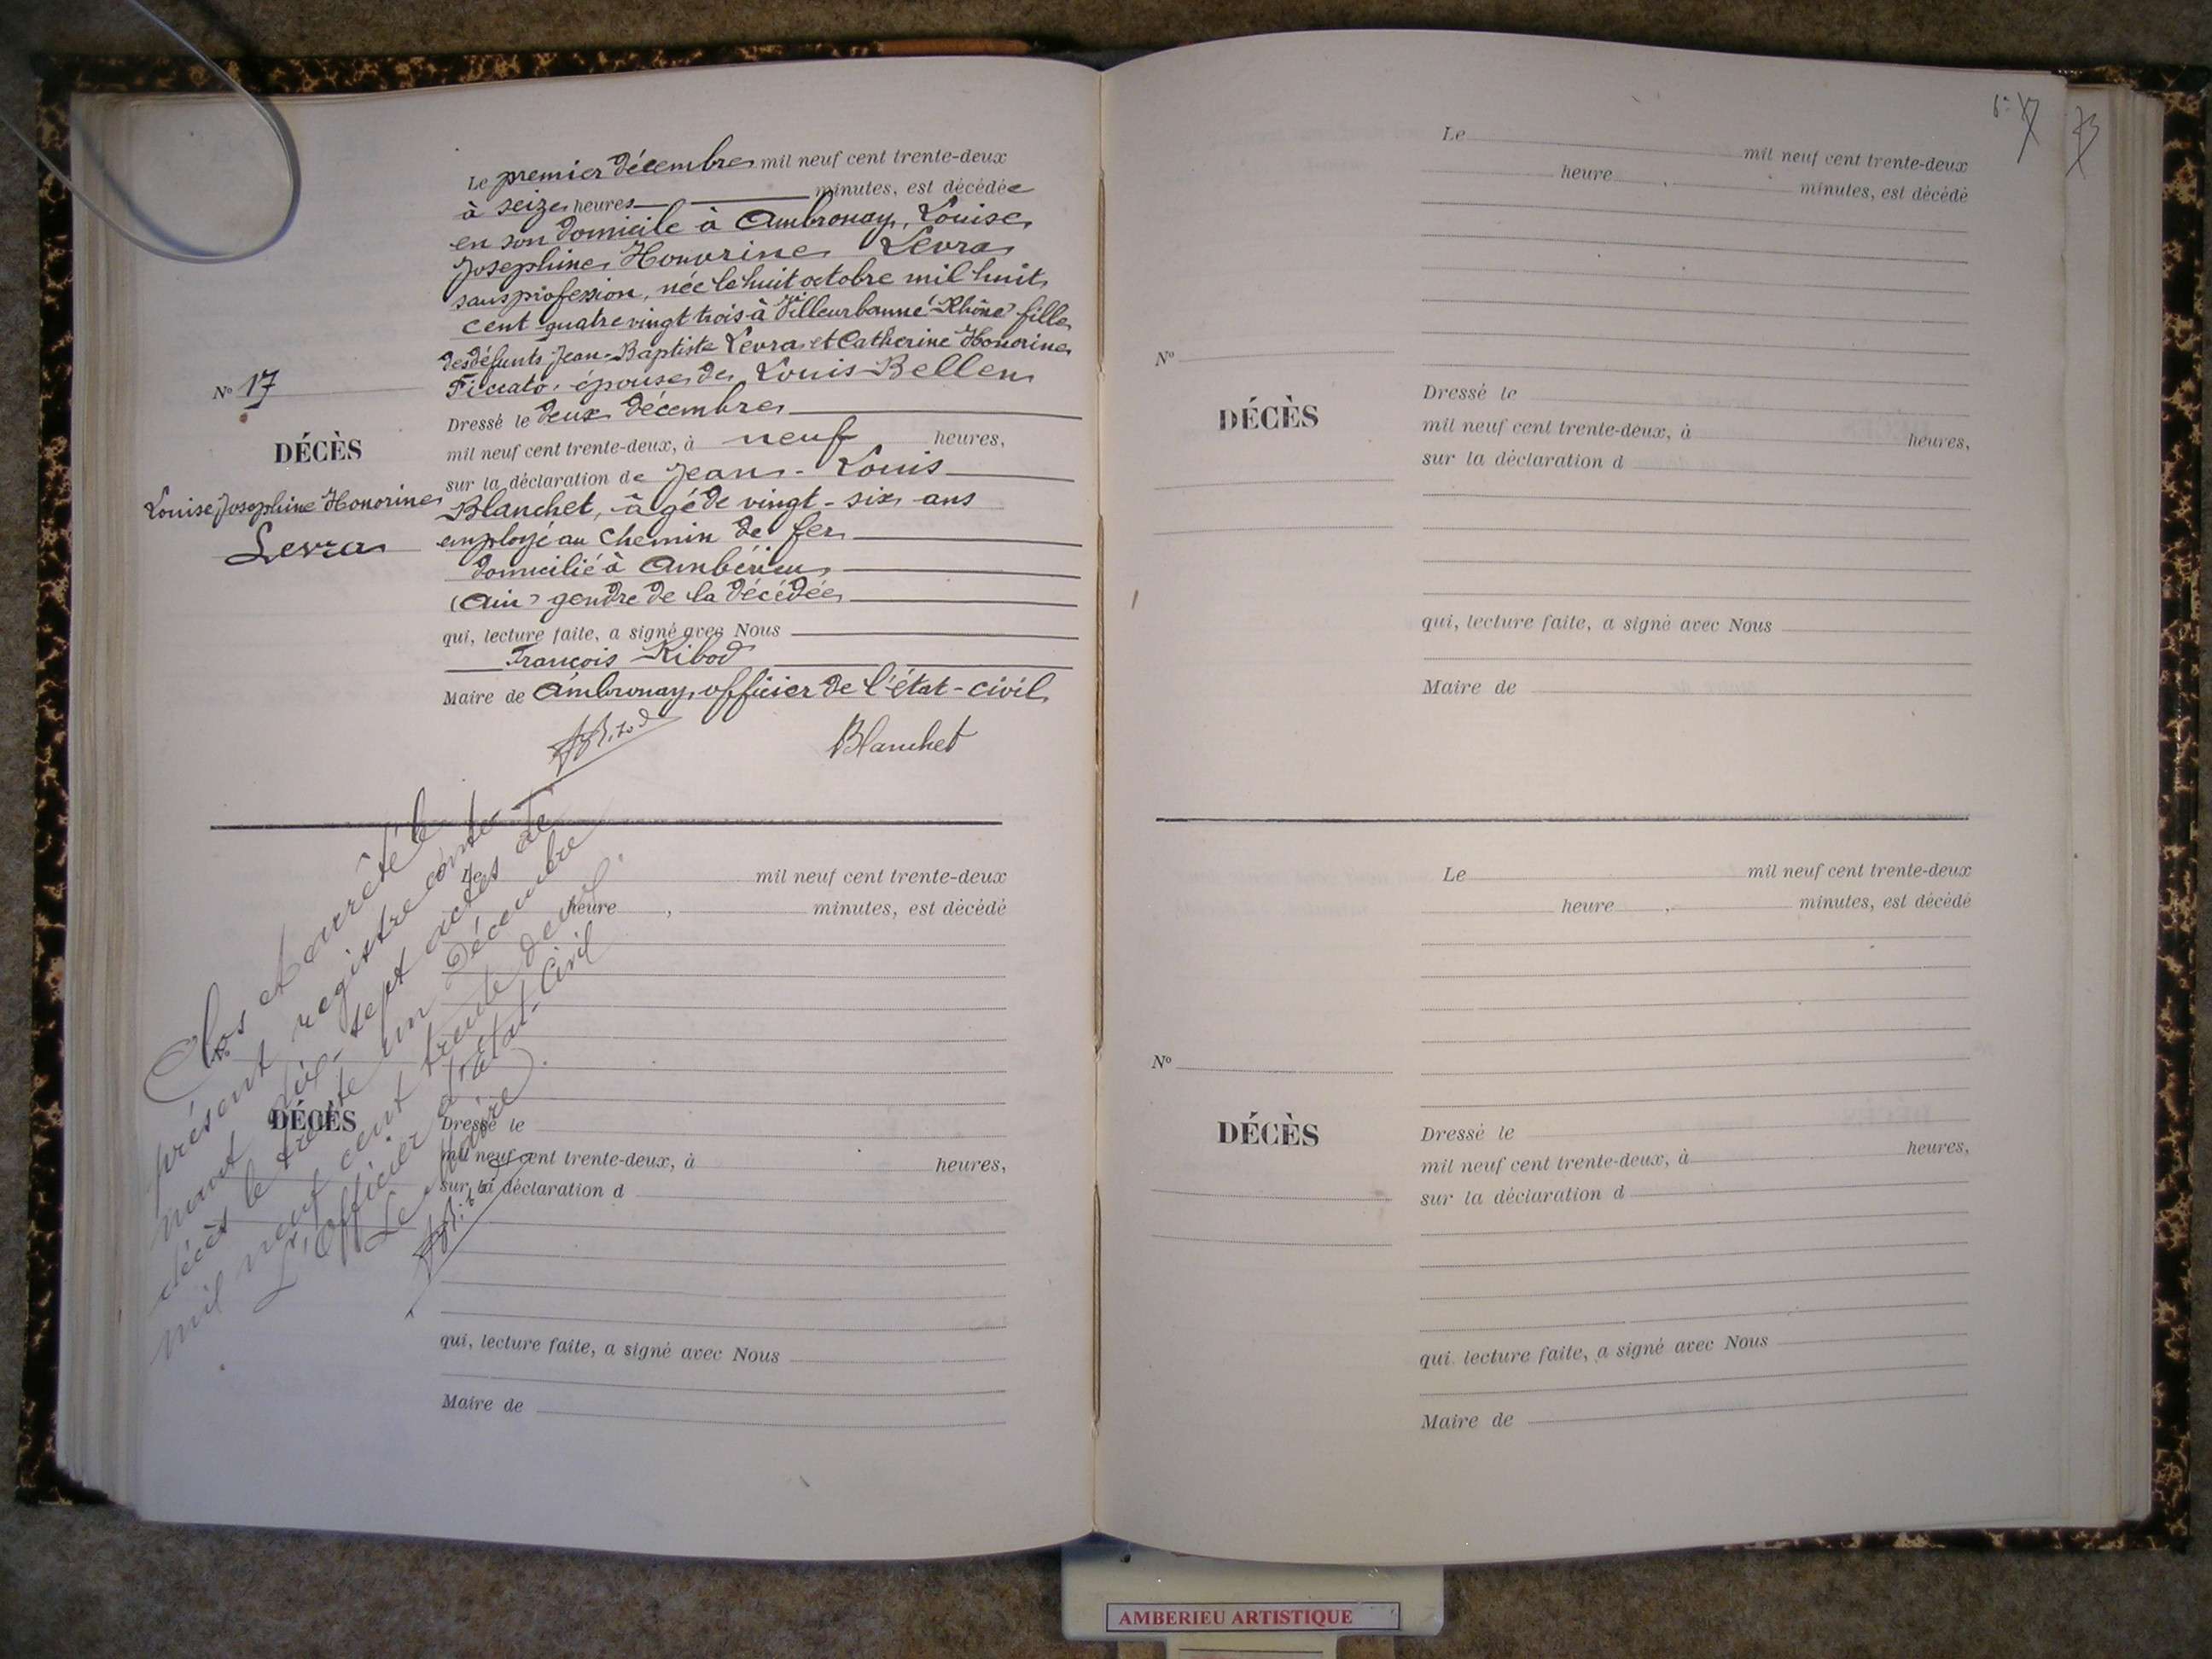 Le premier décembre mil neuf cent trente-deux
à seize heures minutes, est décédée
en son domicile à Ambronay, Louise
Josephine Honorine Levra
sans profession, née le huit octobre mil huit
cent quatre vingt trois à Villeurbanne (Rhône) fille
des défunts Jean-Baptiste Levra et Catherine Honorine
épouse de Louis Bellen
Nº 17
DÉCÈS
Louise, Josephine Honorine
Levra
Dressé le deux décembre
mil neuf cent trente-deux, à neuf heures,
sur la déclaration de Jean-Louis
Blanchet, âgé de vingt-six ans
employé au chemin de fer
domicilié à Ambérieu
(Ain) gendre de la décédée
qui, lecture faite, a signé avec Nous
François Ribod
Maire de Ambronay, officier de l'état-civil
Blanchet
Clos et arrêté le
présent registre conte-
nant dix-sept actes de
décès le trente un Décembre
mil neuf cent trente deux.
L'Officier d'état-civil
Le Maire.
Le mil neuf cent trente-deux
heure , minutes, est décédé
DÉCÈS
Dressé le
mil neuf cent trente-deux, à heures,
sur la déclaration d
qui, lecture faite, a signé avec Nous
Maire de
73
Le mil neuf cent trente-deux
heure , minutes, est décédé
Nº
DÉCÈS
Dressé le
mil neuf cent trente-deux, à heures,
sur la déclaration d
qui, lecture faite, a signé avec Nous
Maire de
Le mil neuf cent trente-deux
heure , minutes, est décédé
Nº
DÉCÈS
Dressé le
mil neuf cent trente-deux, à heures,
sur la déclaration d
qui, lecture faite, a signé avec Nous
Maire de
AMBERIEU ARTISTIQUE